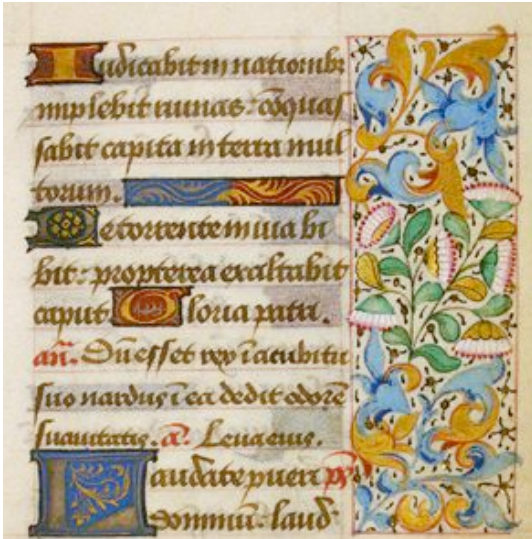 Iudicabit in nationibꝰ
implebit ruinas: cōquas
sabit capita in terra mul
torum.
De torrente in uia bi
bit: propterea exaltabit
caput Gloria patri.
añ. Dū esset rex ī acubitu
suo nardus ī ea dedit odorē
suauitatis. a. Leua eius.
Laudate pueri ps
dominū: laud